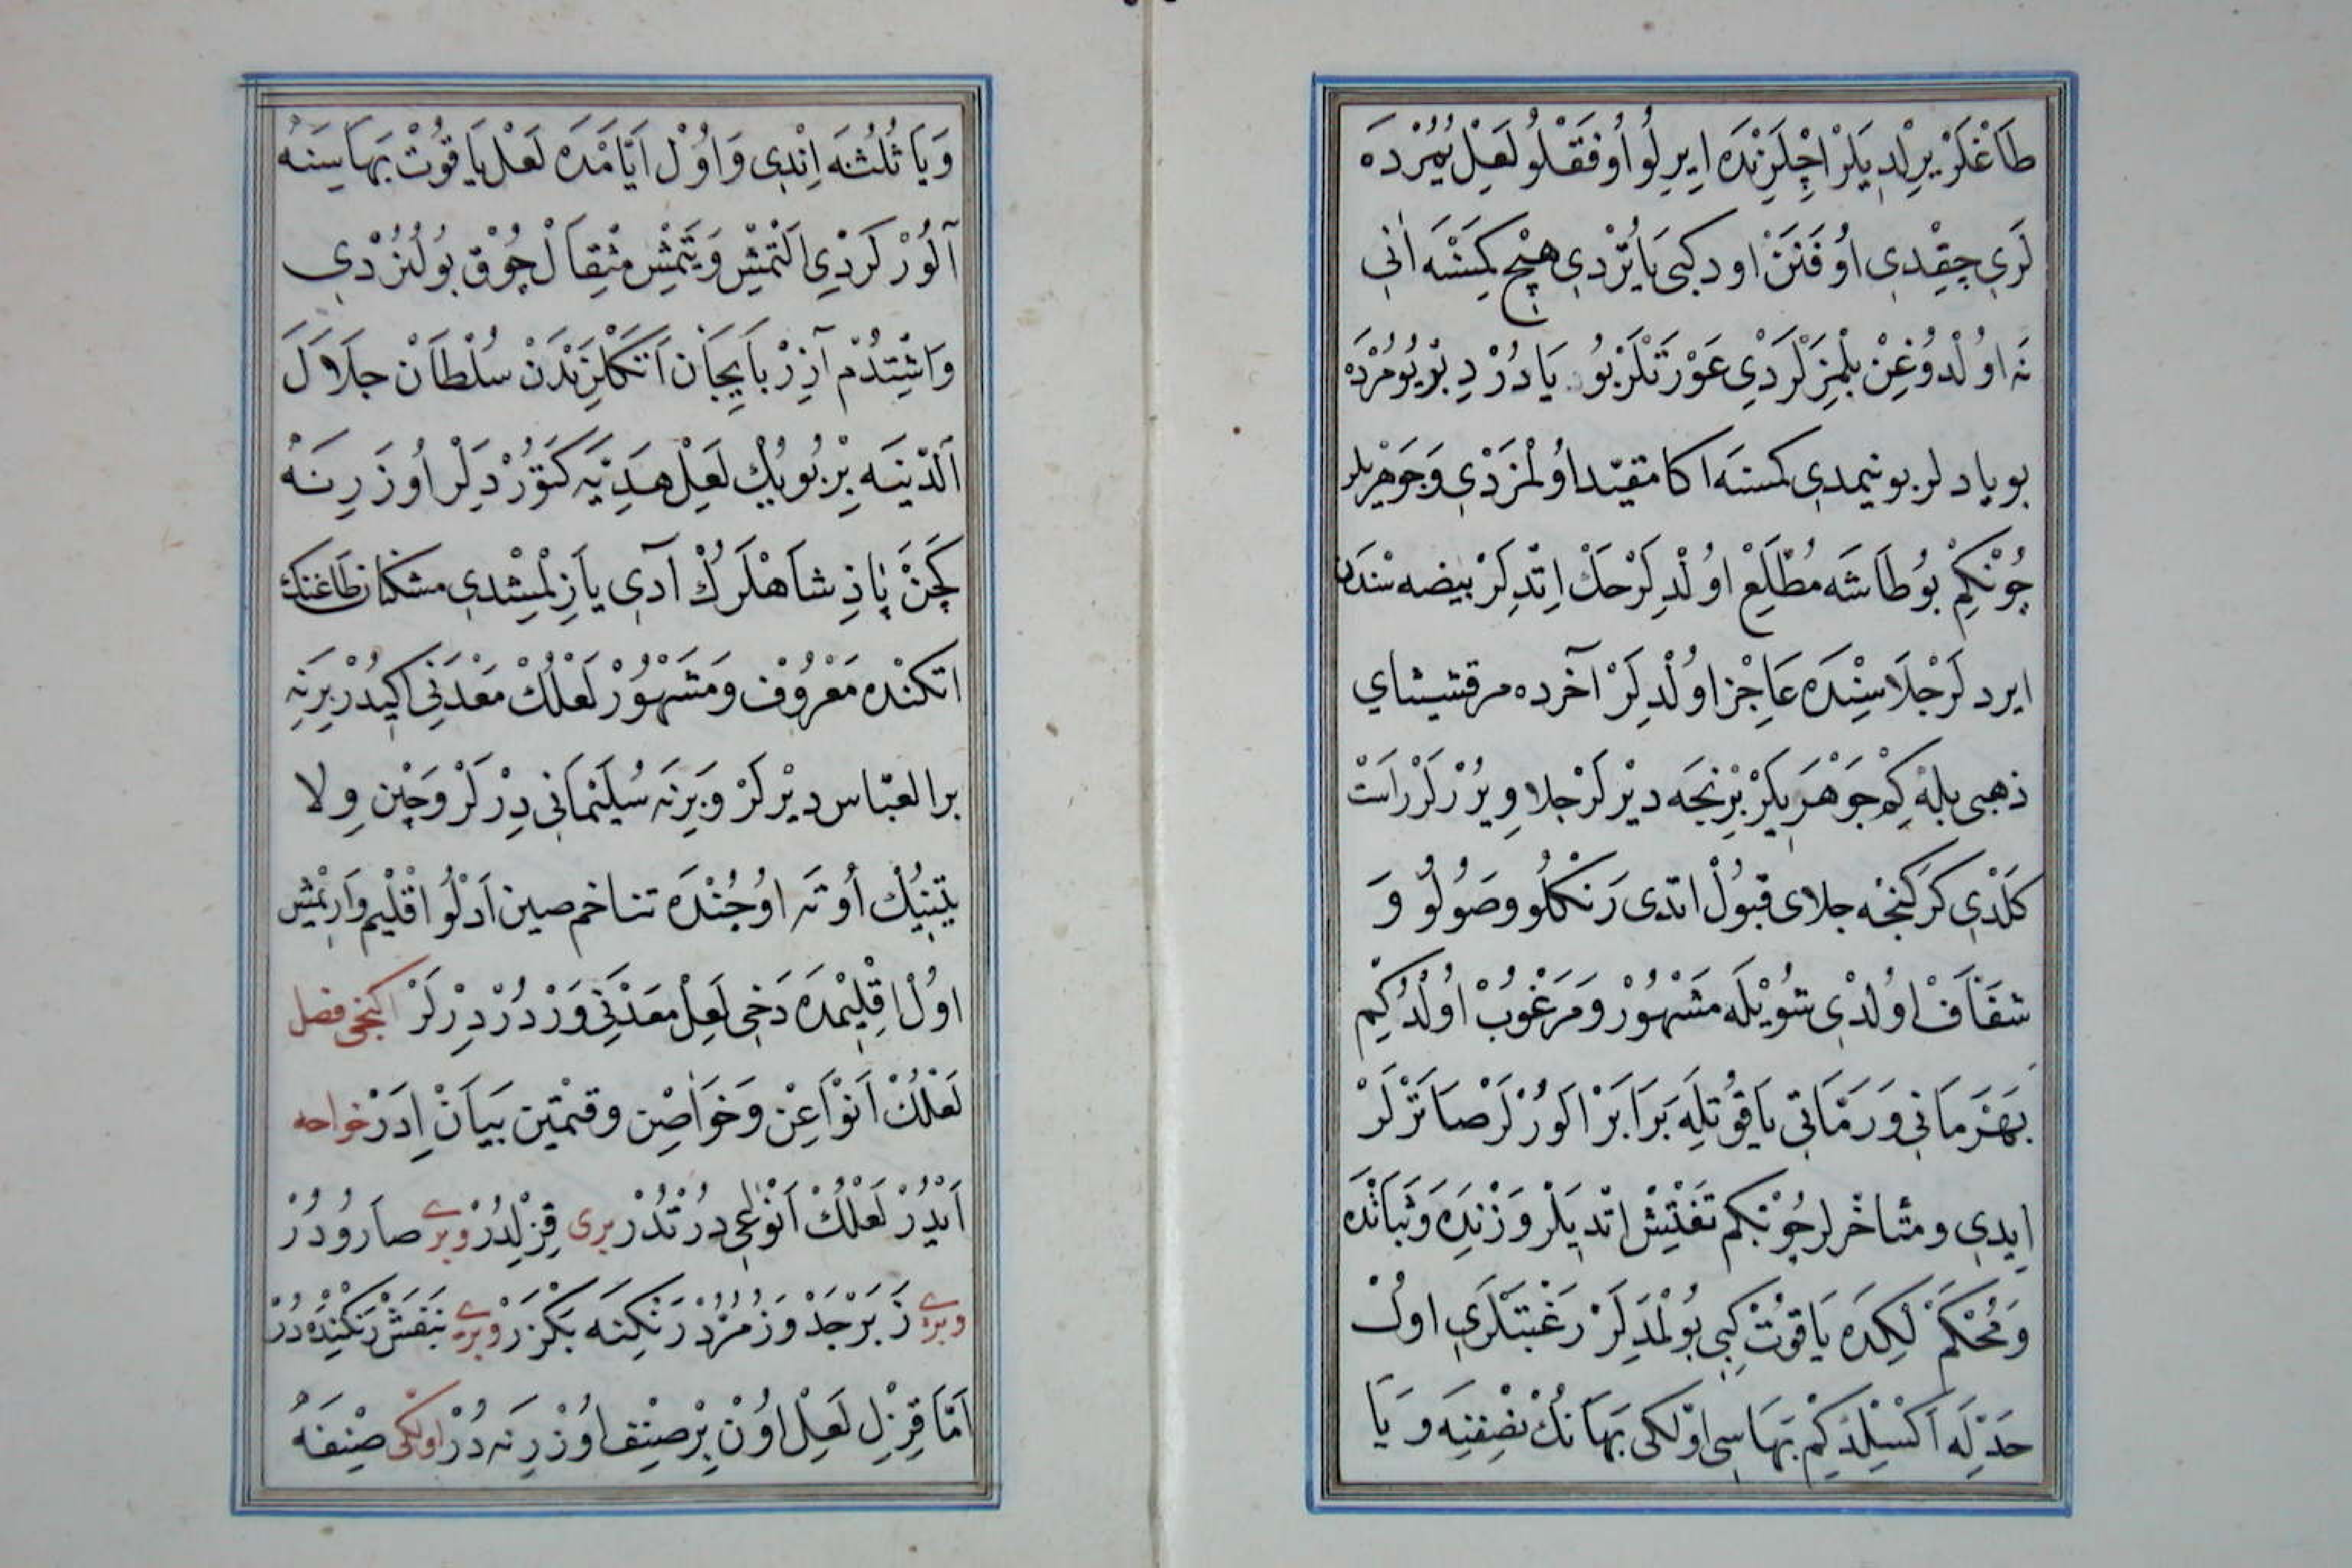 طَاغْلَرْ يِرِلْدِيلَرْ اِچْلَرِنْدَه اِيرِيلُو اُوفَقْلُو لَعِلْ يُمُرْدَه
لَرِي چِقْدِي اُوفَنَنْ اود كبى يَانَرْدِي هِيْچ كِمْسَه اَنِي
نَه اوُلْدُوغِنْ بِلْمِزْلَرْدِي عَوْرَتْلَرْ بُو يَادُرْ دِيُو يُومُرْدَه
بوياد لر بوينمدى كمسه اكا مقيّد اوُلْمَزْدِي وَجَوْهَرِيلر
چُونْكِمْ بُو طَاشَه مُطَّلِعْ اوُلْدِلَرْ حَكْ اِتْدِلَرْ بيضه سْنْدَن
ايرد لَرْ جَلَاسِنْدَه عَاجِزْ اوُلْدِلَرْ آخرده مرقشيشاي
ذهبى بله كِمْ جَوْهَرِيلَرْ بِرِنْجَه ديْرلَرْ جلا وِيرُرْلَرْ رَاسَتْ
كَلْدِي كَرَكِنْجَه جلاى قَبُولْ اتدى رَنْكْلُو وصُولُو وَ
شَفَّافْ اوُلْدِي شُويْلَه مَشْهُورْ وَمَرْغُوبْ اوُلْدُ كِيمْ
بَهْرَمَانِي وَرَمَّاتِي يَاقُوتِلَه بَرَابَرْ الُورْلَرْ صَاتَرْلَرْ
اِيدِي ومتأخرلر چُونْكِم تَفْتِيشْ اتْدِيلَرْ وَزْنِدَه وَثَبَاتْدَه
وَمُحْكَمْ لِكِدَه يَاقُوتْ كِبِي بُولْمَدِلَرْ رَغْبَتْلَرِي اوُل
حَدِّلَه اَكْسِلْدِكِمْ بَهَاسِى اوّلكى بَهَانُكْ نِصْفِنِه وَيَا
وَيَا ثُلُثْنَه اِنْدِي وَاوُلْ اَيَّامْدَه لَعْل يَاقُوتْ بَهَاسِنَه
آلُورْلَرْدِي اَلْتْمِشْ وَيَتْمِشْ مِثْقَالْ چُوْق بُولُنُرْدِي
وَاشِتْدُمْ آذِرْ بَايجَان اَتَكْلَرِنْدَنْ سُلْطَانْ جلَالَ
اَلدِّينَه بِرْ بُويُكْ لَعِلْ هَدِيَّه كَتُورْدِلَرْ اُوزَرِنَه
كَچَنْ پَاذِشَاهْلَرُكْ آدِي يَازِلْمِشْدِي مشكان طَاغنك
اتكنده مَعْرُوف وَمَشْهُورْ لَعْلُكْ مَعْدَنِي اكِيدُرْ بِرِنَه
برالعبّاس ديْرلَرْ وَبِرِنَه سُلَيْمَانِي دِرْلَرْ وَچين ولا
يَتِنِيُكْ اُوتَه اوُجُنْدَه تناخم صين اَدْلُو اقْلِيم وَارِمِشْ
اوُلْ اقْلِيمْدَه دَخِي لَعِلْ مَعْدَنِي وَرْدُرْ دِرْلَرْ اكنجى فصل
لَعْلُكْ اَنْوَاعِنْ وَخَوَاصِّنْ وقيمتين بَيَانْ اِدَرْ خواجه
اَيْدُرْ لَعْلُكْ اَنْوَاعِي دُرْتْدُرْ برى قِزِلْدُرْ وبرى صَارُودُرْ
وبرى زَبَرْجَدْ وَزُمُرُّدْ رَنْكِنَه بَكْزَرْ وبرى بَنَفَشْ رَنْكِنْدَه دُرْ
اَمَّا قِزِلْ لَعِلْ اوُنْ بِرْ صِنِف اوُزرِنَه دُرْ اولكى صِنِفَه